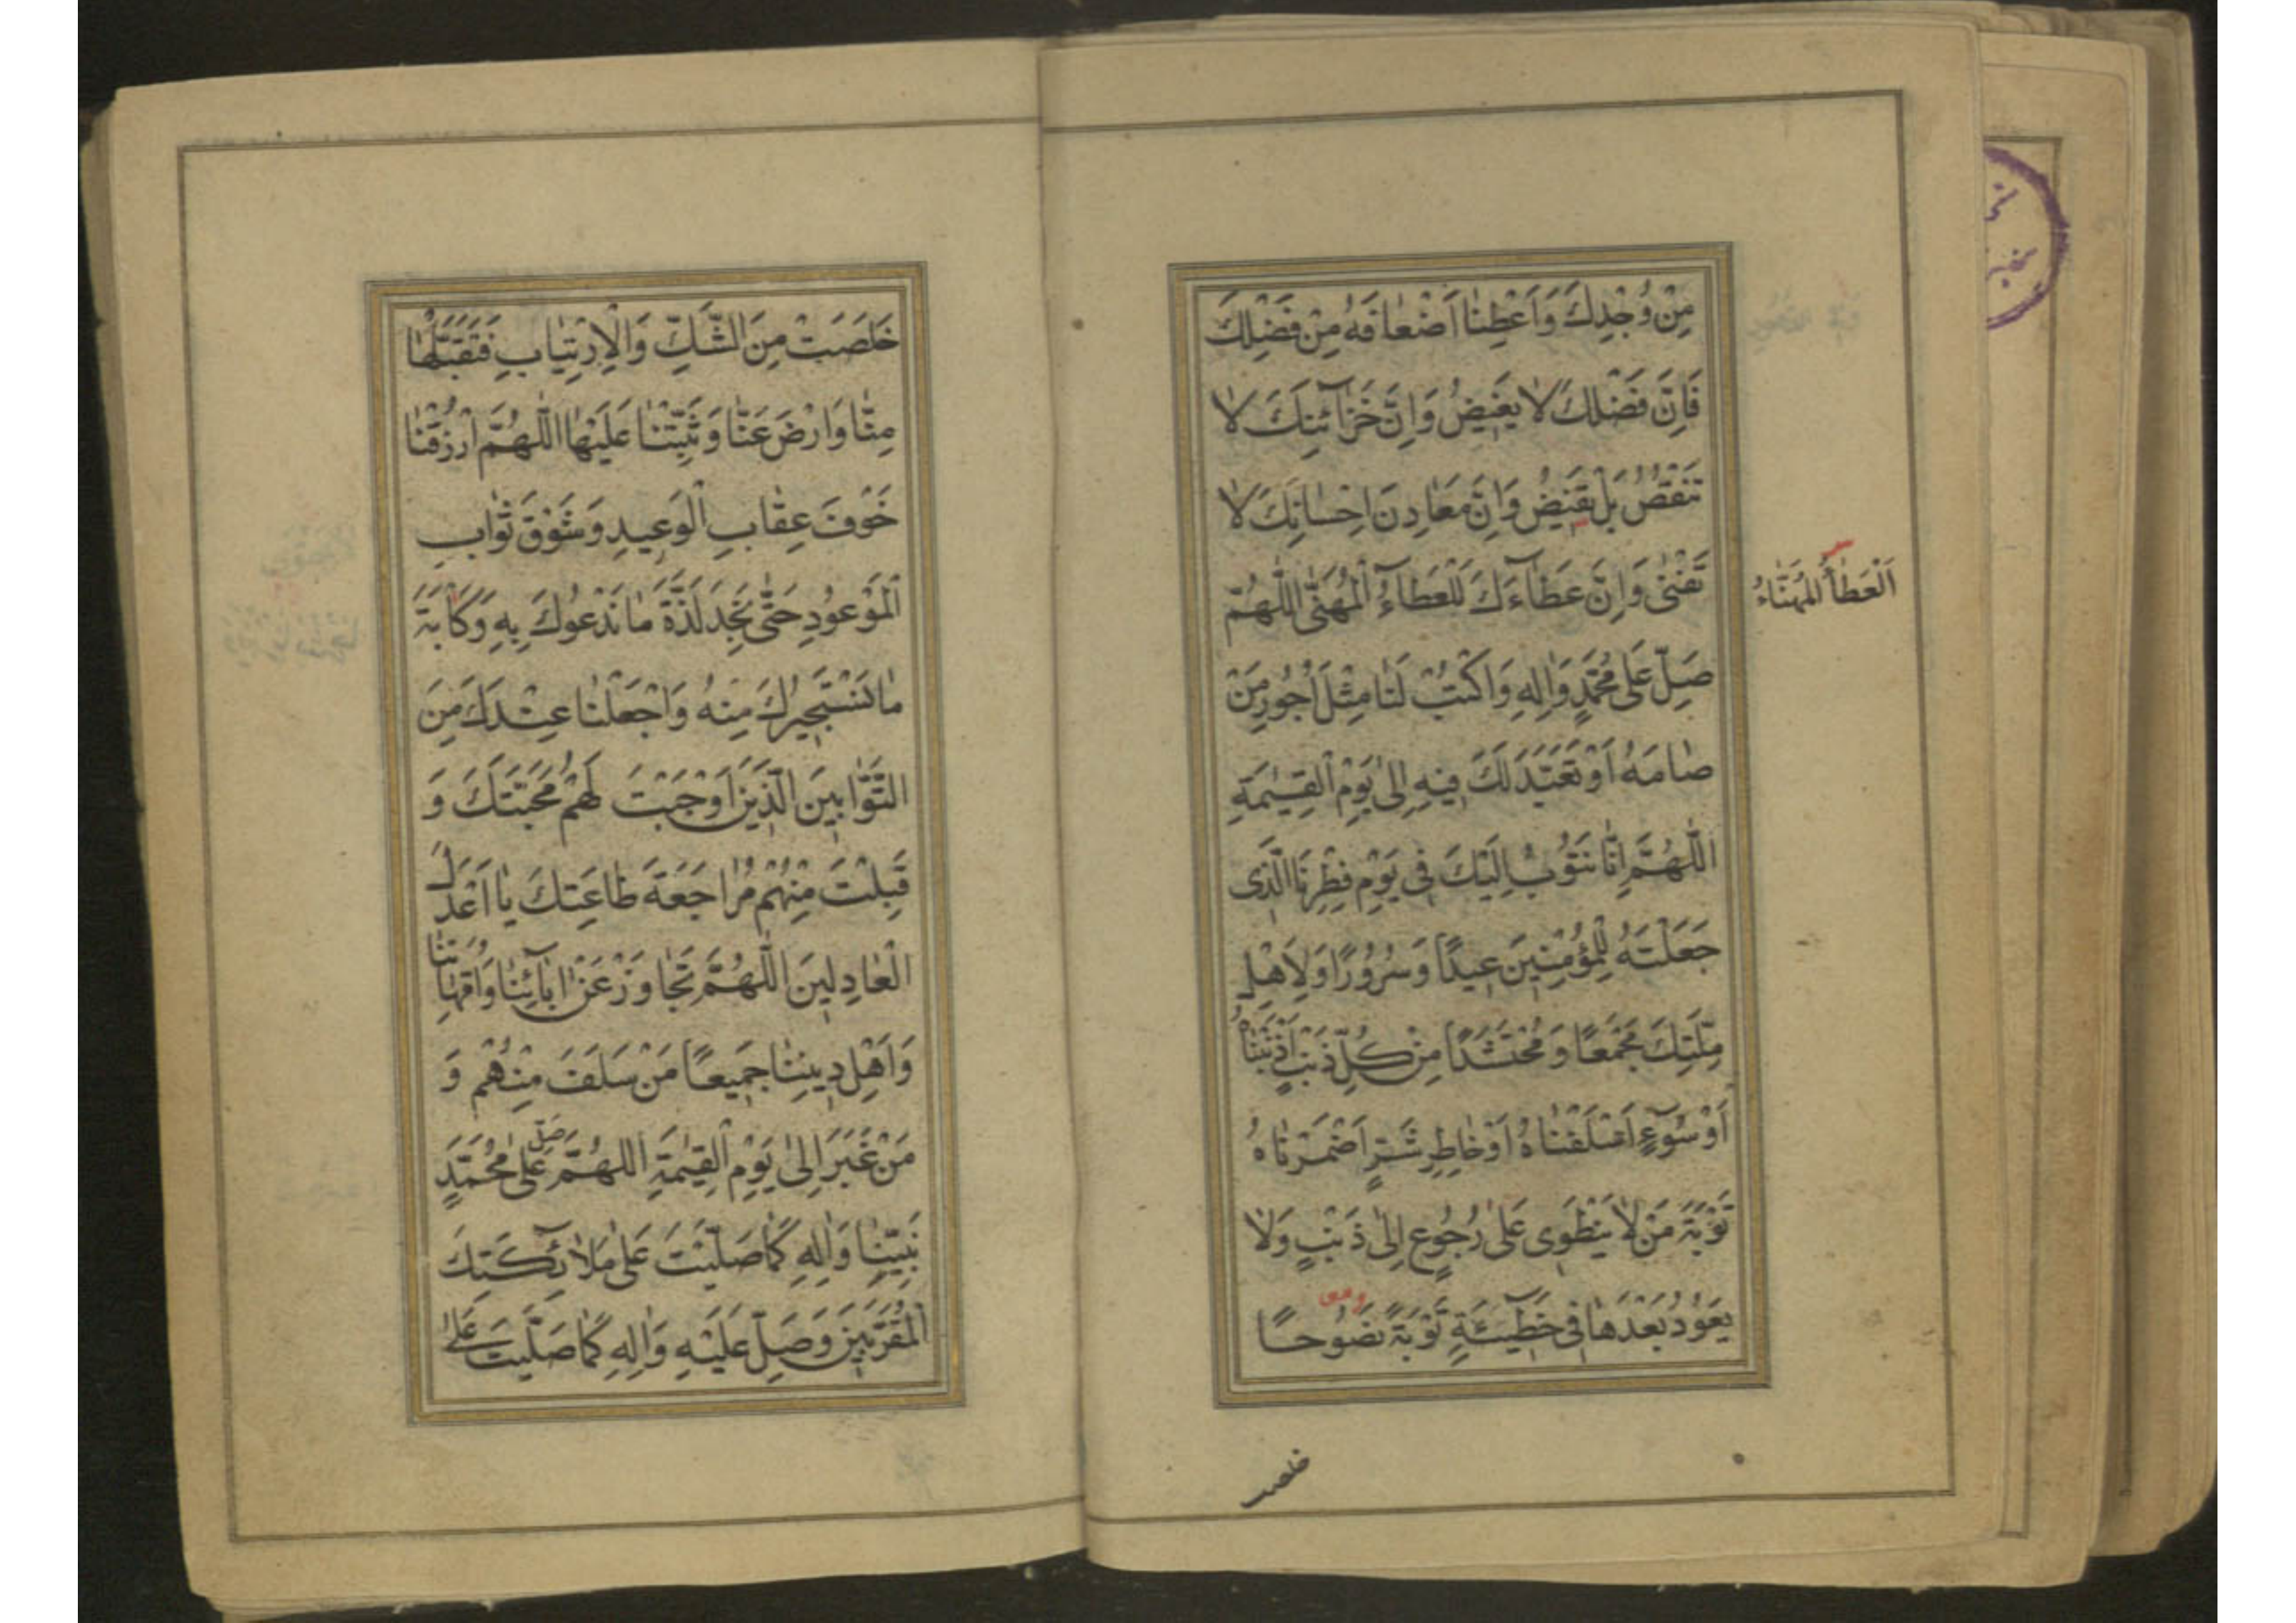 مِنْ وُجْدِكَ وَاَعْطِنٰا اَضْعٰافَهُ مِنْ فَضْلِكَ
فَاِنَّ فَضْلَكَ لاٰ يَغيضُ وَاِنَّ خَزٰآئِنَكَ لاٰ
تَنْقُصُ بَلْ تَفيضُ وَاِنَّ مَعٰادِنَ اِحْسٰانِكَ لاٰ
تَفْنىٰ وَاِنَّ عَطٰآءَكَ لَلْعَطٰآءُ الْمُهَنّٰى اَللّٰهُمَّ
اَلْعَطٰآءُ الْمُهَنّٰاءُ
صَلِّ عَلىٰ مُحَمَّدٍ وَاٰلِهِ وَاكْتُبْ لَنٰا مِثْلَ اُجُورِ مَنْ
صٰامَهُ اَوْ تَعَبَّدَ لَكَ فيهِ اِلىٰ يَوْمِ الْقِيٰمَةِ
اَللّٰهُمَّ اِنّٰا نَتُوبُ اِلَيْكَ فى يَوْمِ فِطْرِنَا الَّذى
جَعَلْتَهُ لِلْمُؤْمِنينَ عيدًا وَسُرُورًا وَلِاَهْلِ
مِلَّتِكَ مَجْمَعًا وَمُحْتَشَدًا مِنْ كُلِّ ذَنْبٍ اَذْنَبْنٰاهُ
اَوْ سُوٓءٍ اَسْلَفْنٰاهُ اَوْ خٰاطِرِ شَرٍّ اَضْمَرْنٰاهُ
تَوْبَةَ مَنْ لاٰ يَنْطَوى عَلىٰ رُجُوعٍ اِلىٰ ذَنْبٍ وَلاٰ
يَعُودُ بَعْدَهٰا فى خَطٓيئَةٍ تَوْبَةً نَصُوحًا
خلصت
خَلَصَتْ مِنَ الشَّكِّ وَالْاِرْتِيٰابِ فَتَقَبَّلْهٰا
مِنّٰا وَارْضَ عَنّٰا وَثَبِّتْنٰا عَلَيْهٰا اَللّٰهُمَّ ارْزُقْنٰا
خَوْفَ عِقٰابِ الْوَعيدِ وَشَوْقَ ثَوٰابِ
الْمَوْعُودِ حَتّٰى نَجِدَ لَذَّةَ مٰا نَدْعُوكَ بِهِ وَكَاْبَةَ
مٰا نَسْتَجيرُكَ مِنْهُ وَاجْعَلْنٰا عِنْدَكَ مِنَ
التَّوّٰابينَ الَّذينَ اَوْجَبْتَ لَهُمْ مَحَبَّتَكَ وَ
قَبِلْتَ مِنْهُمْ مُرٰاجَعَةَ طٰاعَتِكَ يٰا اَعْدَلَ
الْعٰادِلينَ اَللّٰهُمَّ تَجٰاوَزْ عَنْ اٰبٰآئِنٰا وَاُمَّهٰاتِنٰا
وَاَهْلِ دينِنٰا جَميعًا مَنْ سَلَفَ مِنْهُمْ وَ
مَنْ غَبَرَ اِلىٰ يَوْمِ الْقِيٰمَةِ اَللّٰهُمَّ صَلِّ عَلىٰ مُحَمَّدٍ
نَبِيِّنٰا وَاٰلِهِ كَمٰا صَلَّيْتَ عَلىٰ مَلاٰئِكَتِكَ
الْمُقَرَّبينَ وَصَلِّ عَلَيْهِ وَاٰلِهِ كَمٰا صَلَّيْتَ عَلىٰ